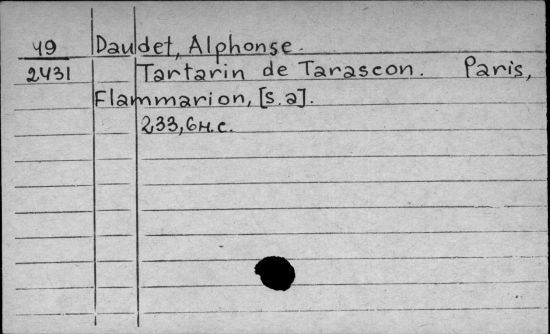 49 Daudet, Alphonse.
2431 Tartarin de Tarascon. Paris,
Flammarion, [s.a].
233,6 н.с.